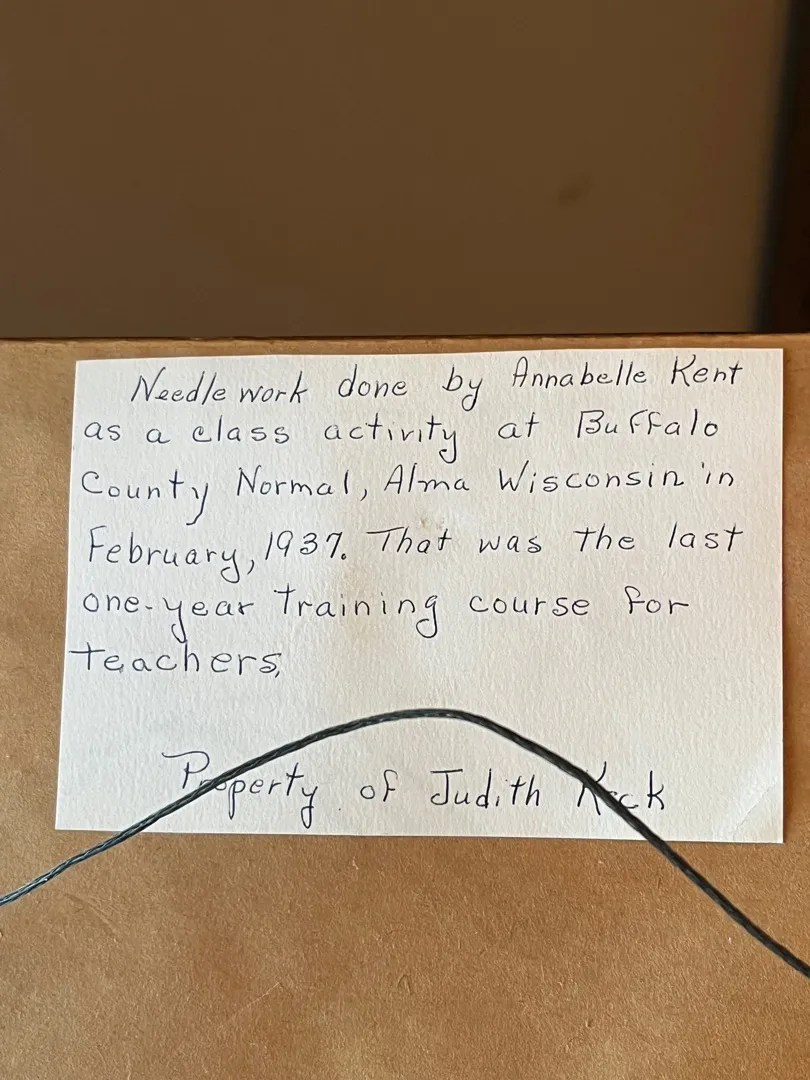 Needle work done by Annabelle Kent
as a class activity at Buffalo
County Normal, Alma Wisconsin in
February, 1937. That was the last
one-year training course for
teachers.
Property of Judith